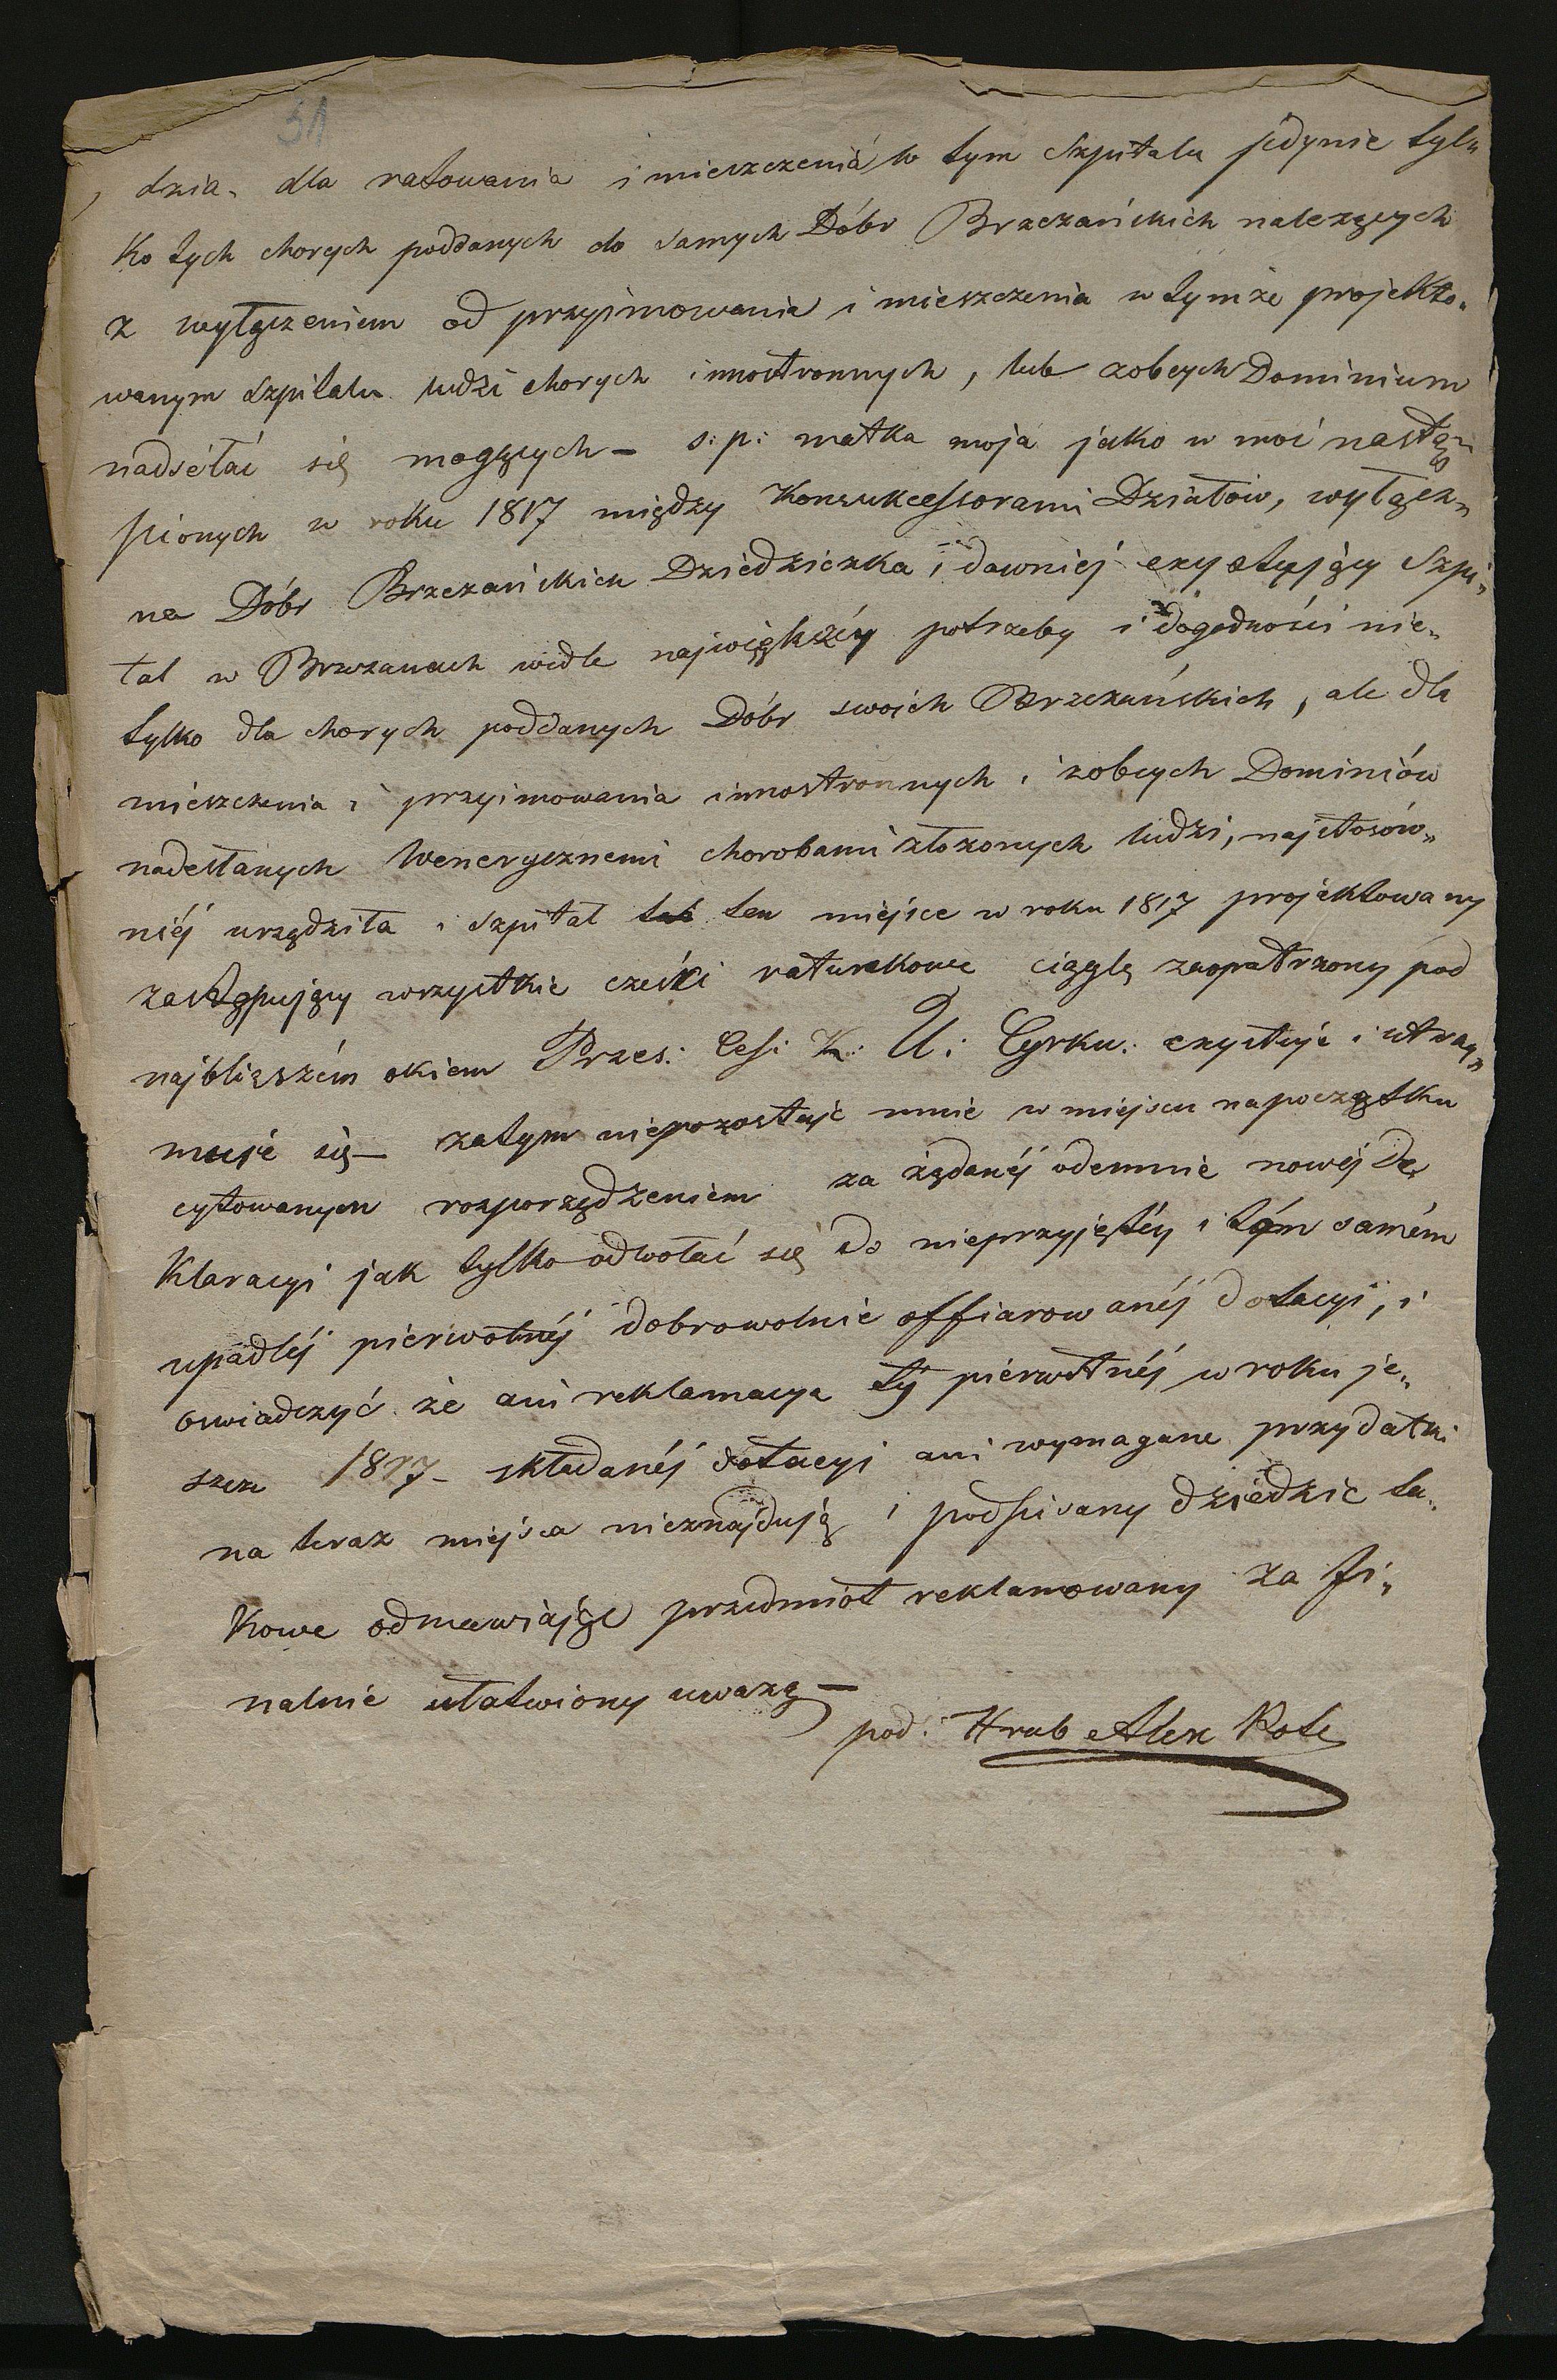 31
dzia„ dla ratowania i mieszczenia w tym Szpitalu jedynie tyl„
ko tych chorych poddanych do samych Dóbr Brzeżańskich należących
z wyłączeniem od przyimowania i mieszczenia w tymże projekto„
wanym Szpitalu ludzi chorych innostronnych, lub zobcych Dominium
nadsełać się mogących — s: p: matka moja jako w moc nastą„
pionych w roku 1817 między Konsukcessorami Działów, wyłącz„
na Dóbr Brzeżańskich Dziedziczka i dawniej exystujący Szpi„
tal w Brzeżanach wedle największéy potrzeby i dogodności nie„
tylko dla chorych poddanych Dóbr swoich Brzeżańskich, ale dla
mieszczenia i przyimowania innostronnych i zobcych Dominiów
nadesłanych Wenerycznemi chorobami złożonych ludzi, najstosów„
niéj urządziła i Szpital ten miejsce w roku 1817 projektowany
zastępujący wszystkie cześki ratunkowe ciągle zaopatrzony pod
najbliższém okiem Przes: Cess: K: U: Cyrku: exystuje i utrzy„
muje się — zatym niepozostaje mnie w miejscu napoczątku
cytowanym rozporządzeniem za żądanéj odemnie nowéj De„
klaracyi jak tylko odwołać się do nieprzyjętéy i tém samém
upadłéj pierwotnéj dobrowolnie offiarowanéj dotacyi, i
oswiadczyć że ani reklamacya téj pierwotnéj w roku je„
szcze 1817 – składanéj dotacyi ani wymagane przydatki
na teraz miejsca nieznajdują i podpisany dziedzic ta„
kowe odmawiając przedmiot reklamowany za fi„
nalnie ułatwiony uważa —
pod: Hrab Alex Pote